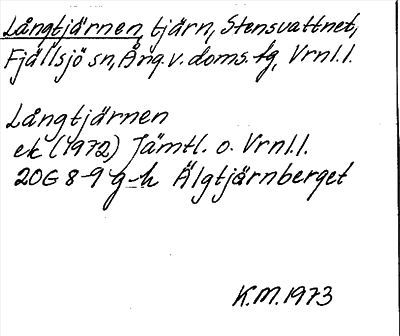 Långtjärnen, tjärn, Stensvattnet,
Fjällsjö sn, Ång. v. doms. fg, Vrnl.l.
Långtjärnen
ek (1972) Jämtl. o. Vrnl.l.
20G 8-9 g-h Älgtjärnberget
K.M. 1973